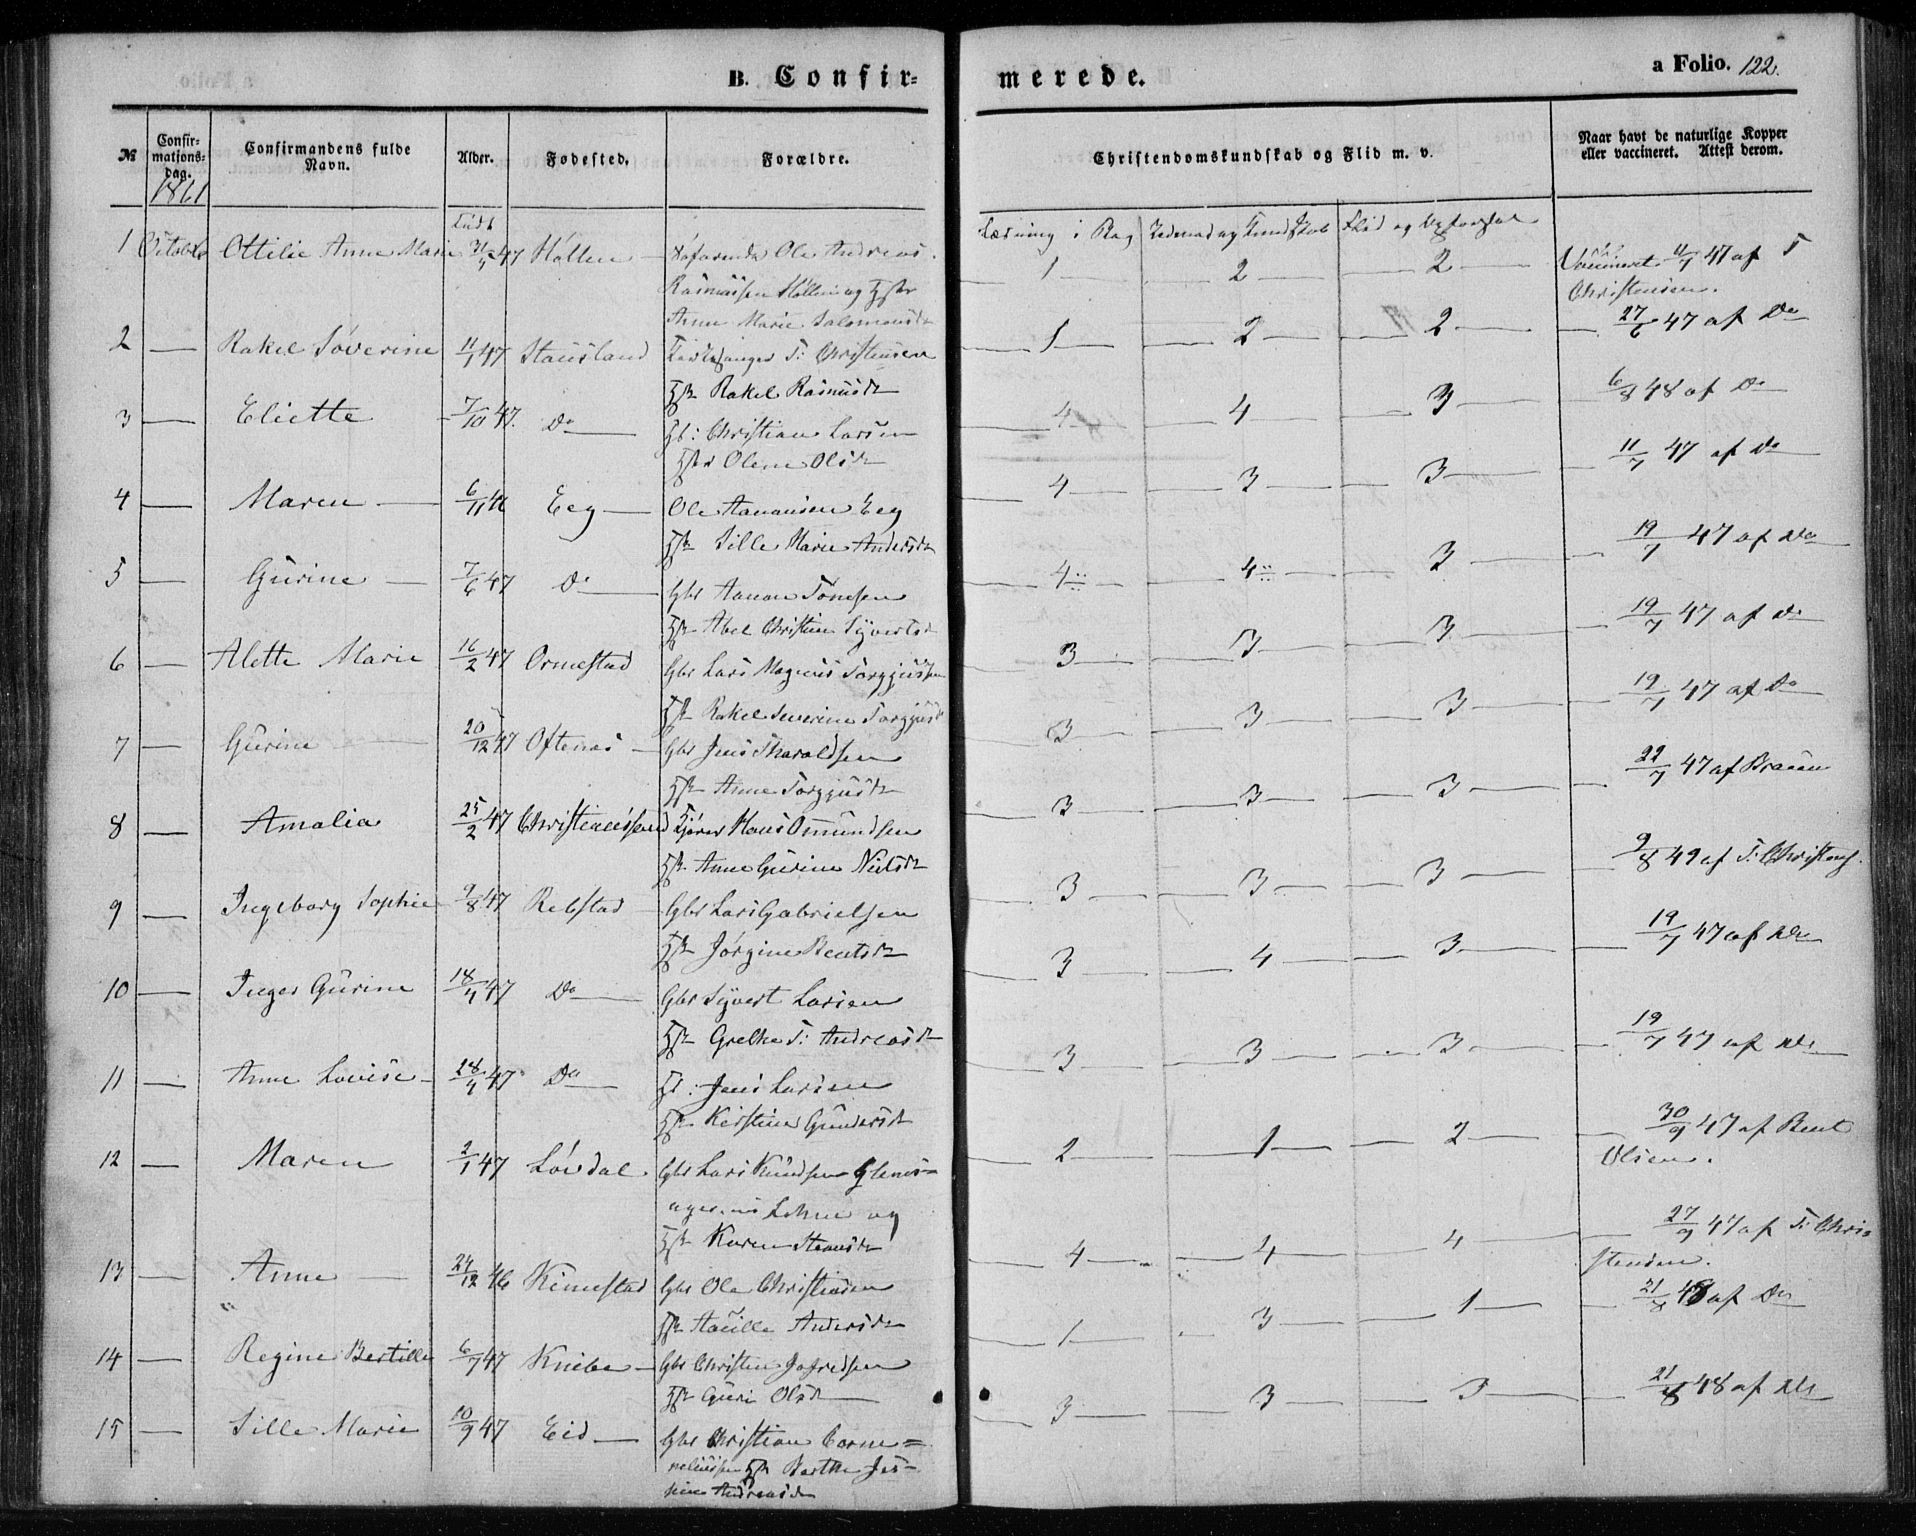 B. Confir-
merede.
a Folio. 122.
№
Confir-
mations-
dag.
1861
Confirmandens fulde
Navn.
Alder.
Fødested.
Forældre.
Christendomskundskab og Flid m. v.
Naar havt de naturlige Kopper
eller vaccineret. Attest derom.
Læsning i Bog
Flid og
1 October Ottilie Anne Marie 47 Høllen Søfarende Ole Andreas
Rasmussen Høllen og Hstr
Anne Marie Salomonsdr
1 2 2 Vaccineret 11/7 47 af T
Christensen.
2 — Rakel Søverine 11/1 47 Stausland T: Christensen
Hstr Rakel Rasmusdr
1 2 2 — 27/6 47 af Do
3 — Eliette 7/10 47. Do Gb: Christian Larsen
Hstr Olene Olsdr
4 4 3 — 6/8 48 af Do
4 — Maren — 6/11 46 Eeg — Ole Aanonsen Eeg
Hstr Sille Marie Andersdr
4 3 3 — 11/7 47 af Do
5 — Gurine — 7/6 47 Do Gbr Aanon Tomesen
Hstr Abel Christine Syvertsdr
4 4 3 — 19/7 47 af Do
6 — Alette Marie 16/2 47 Ormestad Gbr Lars Magnus Torgjussen
Hstr Rakel Severine Torgjusdr
3 3 3 — 19/7 47 af Do
7 — Gurine — 20/12 47 Oftenes — Gbr Jens Tharaldsen
Hstr Anne Torgjusdr
3 3 3 — 19/7 47 af Do
8 — Amalia 25/2 47 Christianssand Hans Omundsen
Hstr Anne Gurine Nielsdr
3 3 3 — 22/7 47 af Braun
9 — Ingeborg Sophie 9/8 47 Rebstad — Gbr Lars Gabrielsen
Hstr Jørgine Bentsdr
3 3 3 — 9/8 49 af T: Christens.
10 — Inger Gurine 18/4 47 Do Gbr Syvert Larsen
Hstr Grethe T: Andreasdr
3 4 3 — 19/7 47 af Do
11 — Anne Lovise — 28/4 47 Do Jens Larsen
Hstr Kirstine Gundersdr
3 3 3 — 19/7 47 af Do
12 — Maren 2/1 47 Løvdal Gbr Lars Knudsen
Lohne og
Hstr Karen
2 1 2 — 30/9 47 af Bent
Olsen.
13 — Anne — 24/12 46 Kimestad Gbr Ole Christensen
Hstr Andersdr
4 4 4 — 27/9 47 af T: Chri-
stensen.
14 — Regine Bertille 6/7 47 Knibe — Gbr Christen Jofredsen
Hstr Guri Olsdr
1 3 1 — 21/8 48 af Do
15 — Sille Marie 10/9 47 Eid — Gbr Christian Corne=
neliussen Hstr Berthe Jes-
sine Andreasdr
3 3 3 — 21/8 48 af Do